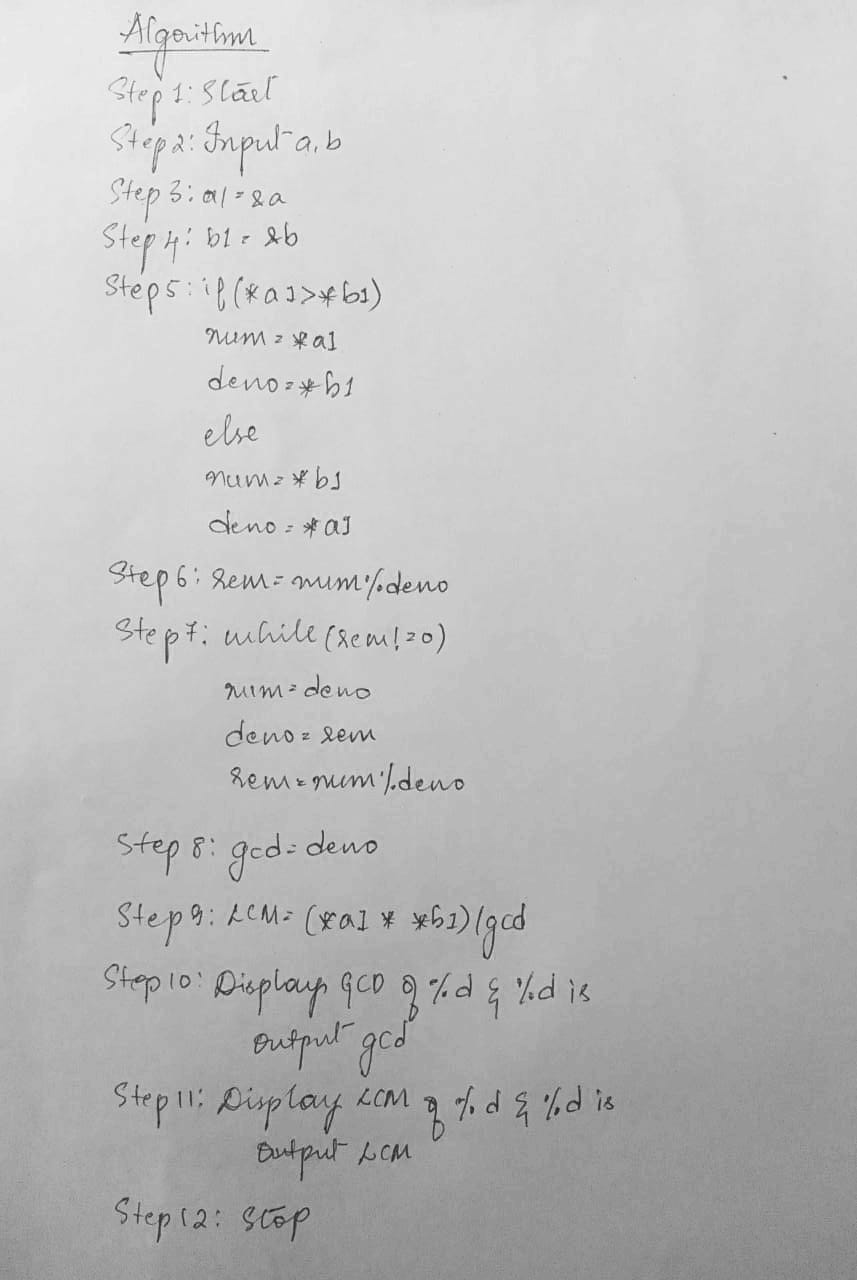 Algorithm
Step 1: Start
Step 2: Input a, b
Step 3: a1 = &a
Step 4: b1 = &b
Step 5: if (*a1>*b1)
num = *a1
deno = *b1
else
num = *b1
deno = *a1
Step 6: rem = num % deno
Step 7: while (rem != 0)
num = deno
deno = rem
rem = num % deno
Step 8: gcd = deno
Step 9: LCM = (*a1 * *b1)/gcd
Step 10: Display GCD of %d & %d is
output gcd
Step 11: Display LCM of %d & %d is
Output LCM
Step 12: Stop